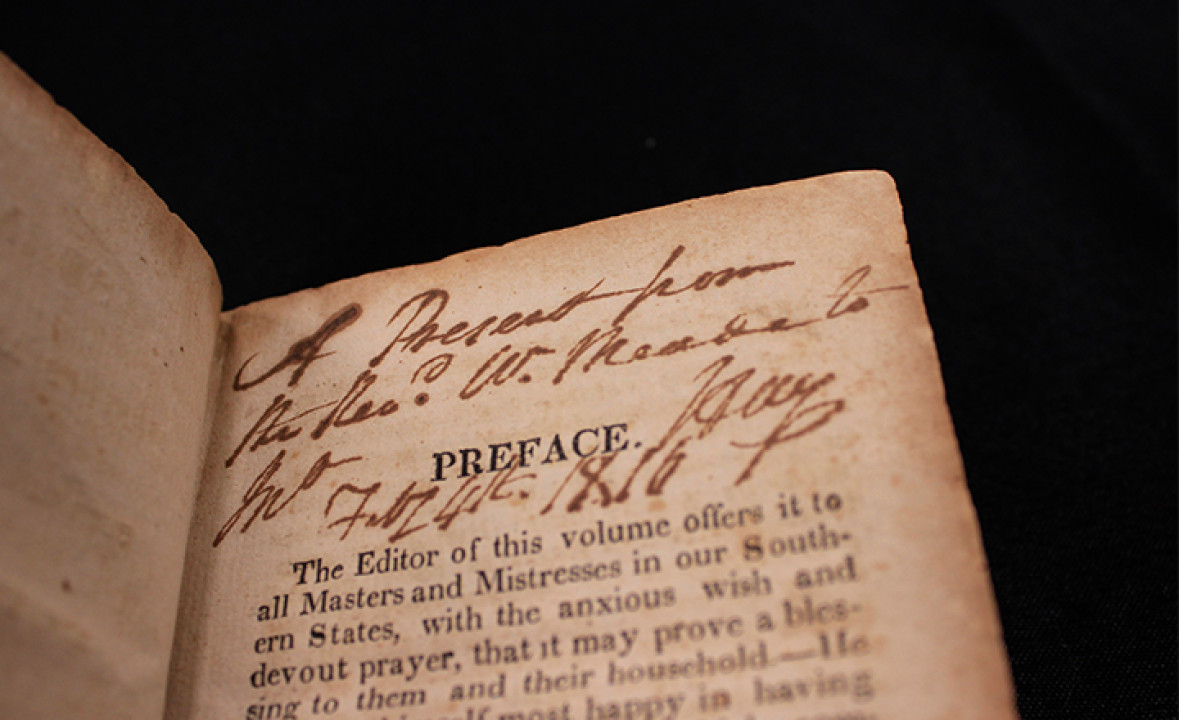 A Present from
the Rev.d W. Meade to
Jno Hay
PREFACE.
Feb 24th. 1816
The Editor of this volume offers it to
all Masters and Mistresses in our South-
ern States, with the anxious wish and
devout prayer, that it may prove a bles-
sing to them and their household.—He
most happy in having